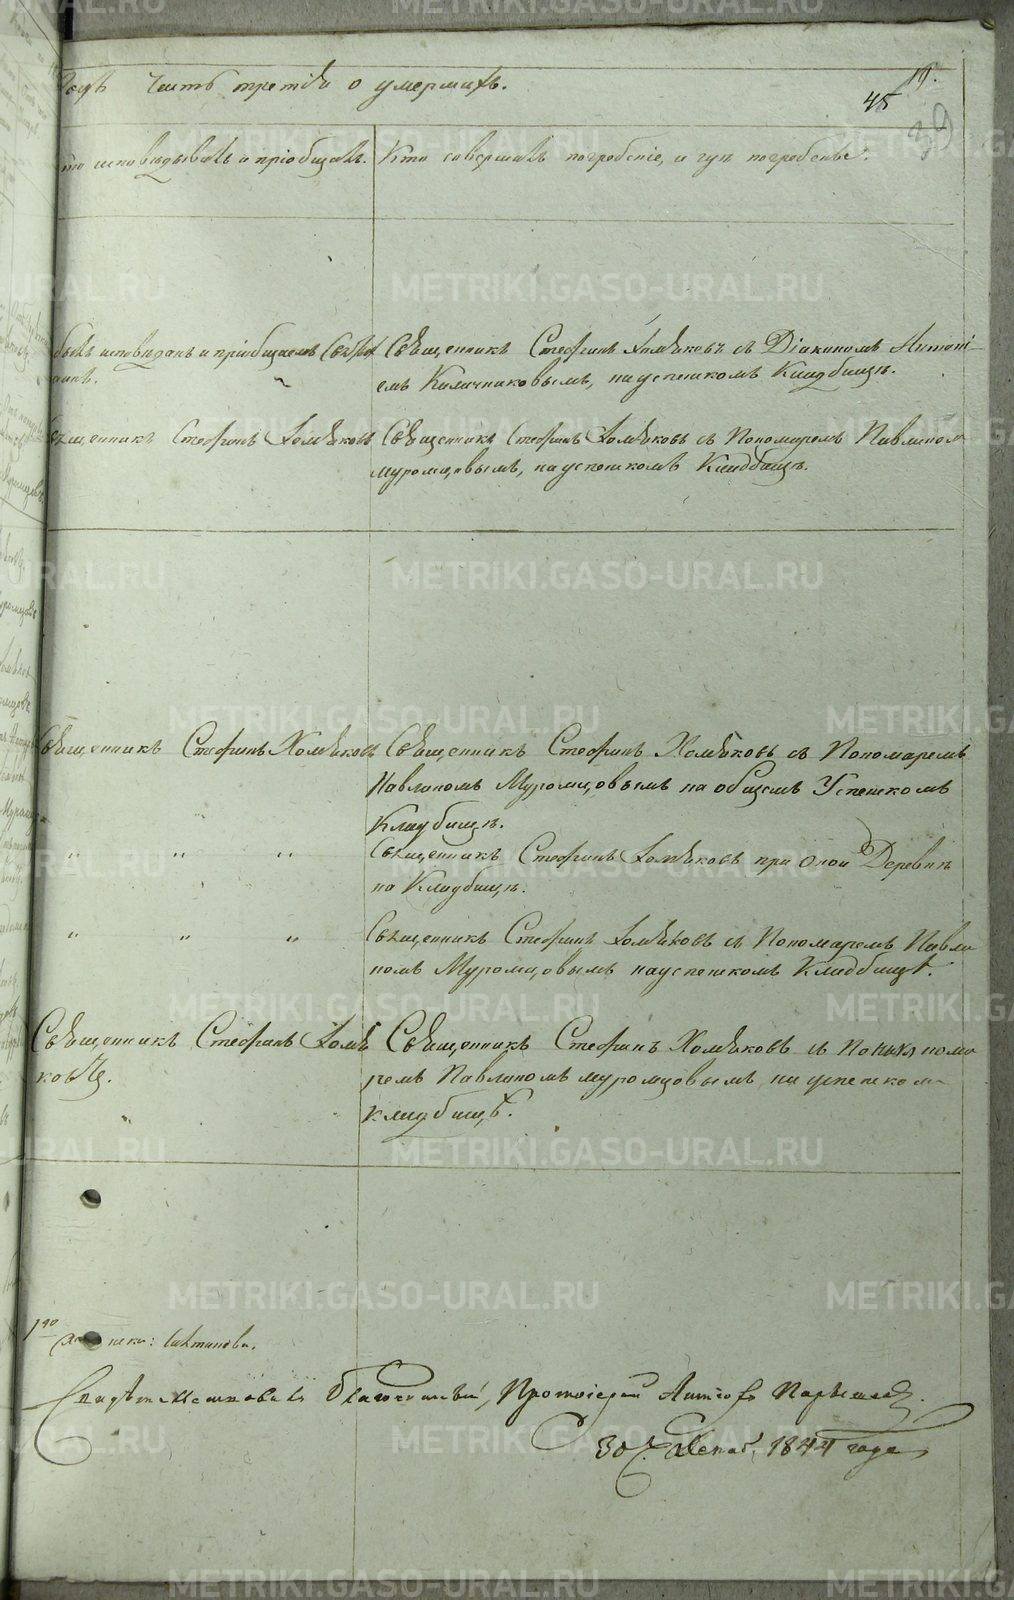 Годъ часть третія о умершихъ.
19.
45
39
то исповѣдывалъ и пріобщалъ. Кто совершалъ погребеніе, и гдѣ погребены.
былъ исповѣданъ и пріобщаемъ Священникъ Стефанъ Хомяковъ съ Діакономъ Антоні
емъ Калачниковымъ, на успенскомъ Кладбищѣ.
Священникъ Стефанъ Хомяковъ Священникъ Стефанъ Хомяковъ съ Пономаремъ Павлином
Муромцовымъ, на успенскомъ Кладбищѣ.
Священникъ Стефанъ Хомяковъ Священникъ Стефанъ Хомяковъ съ Пономаремъ
Павлиномъ Муромцовымъ на общемъ Успенскомъ
Кладбищѣ.
" " " Священникъ Стефанъ Хомяковъ при оной Деревнѣ
на Кладбищѣ.
" " " Священникъ Стефанъ Хомяковъ съ Пономаремъ Павли
номъ Муромцовымъ на успенскомъ Кладбищѣ.
Священникъ Стефанъ Хомя Священникъ Стефанъ Хомяковъ съ поно
ковъ. ремъ Павлиномъ Муромцовымъ, на успенском
Кладбищѣ.
Свидѣтельствовалъ Благочинный, Протоіерей
30 Декаб. 1844 года
METRIKI.GASO-URAL.RU